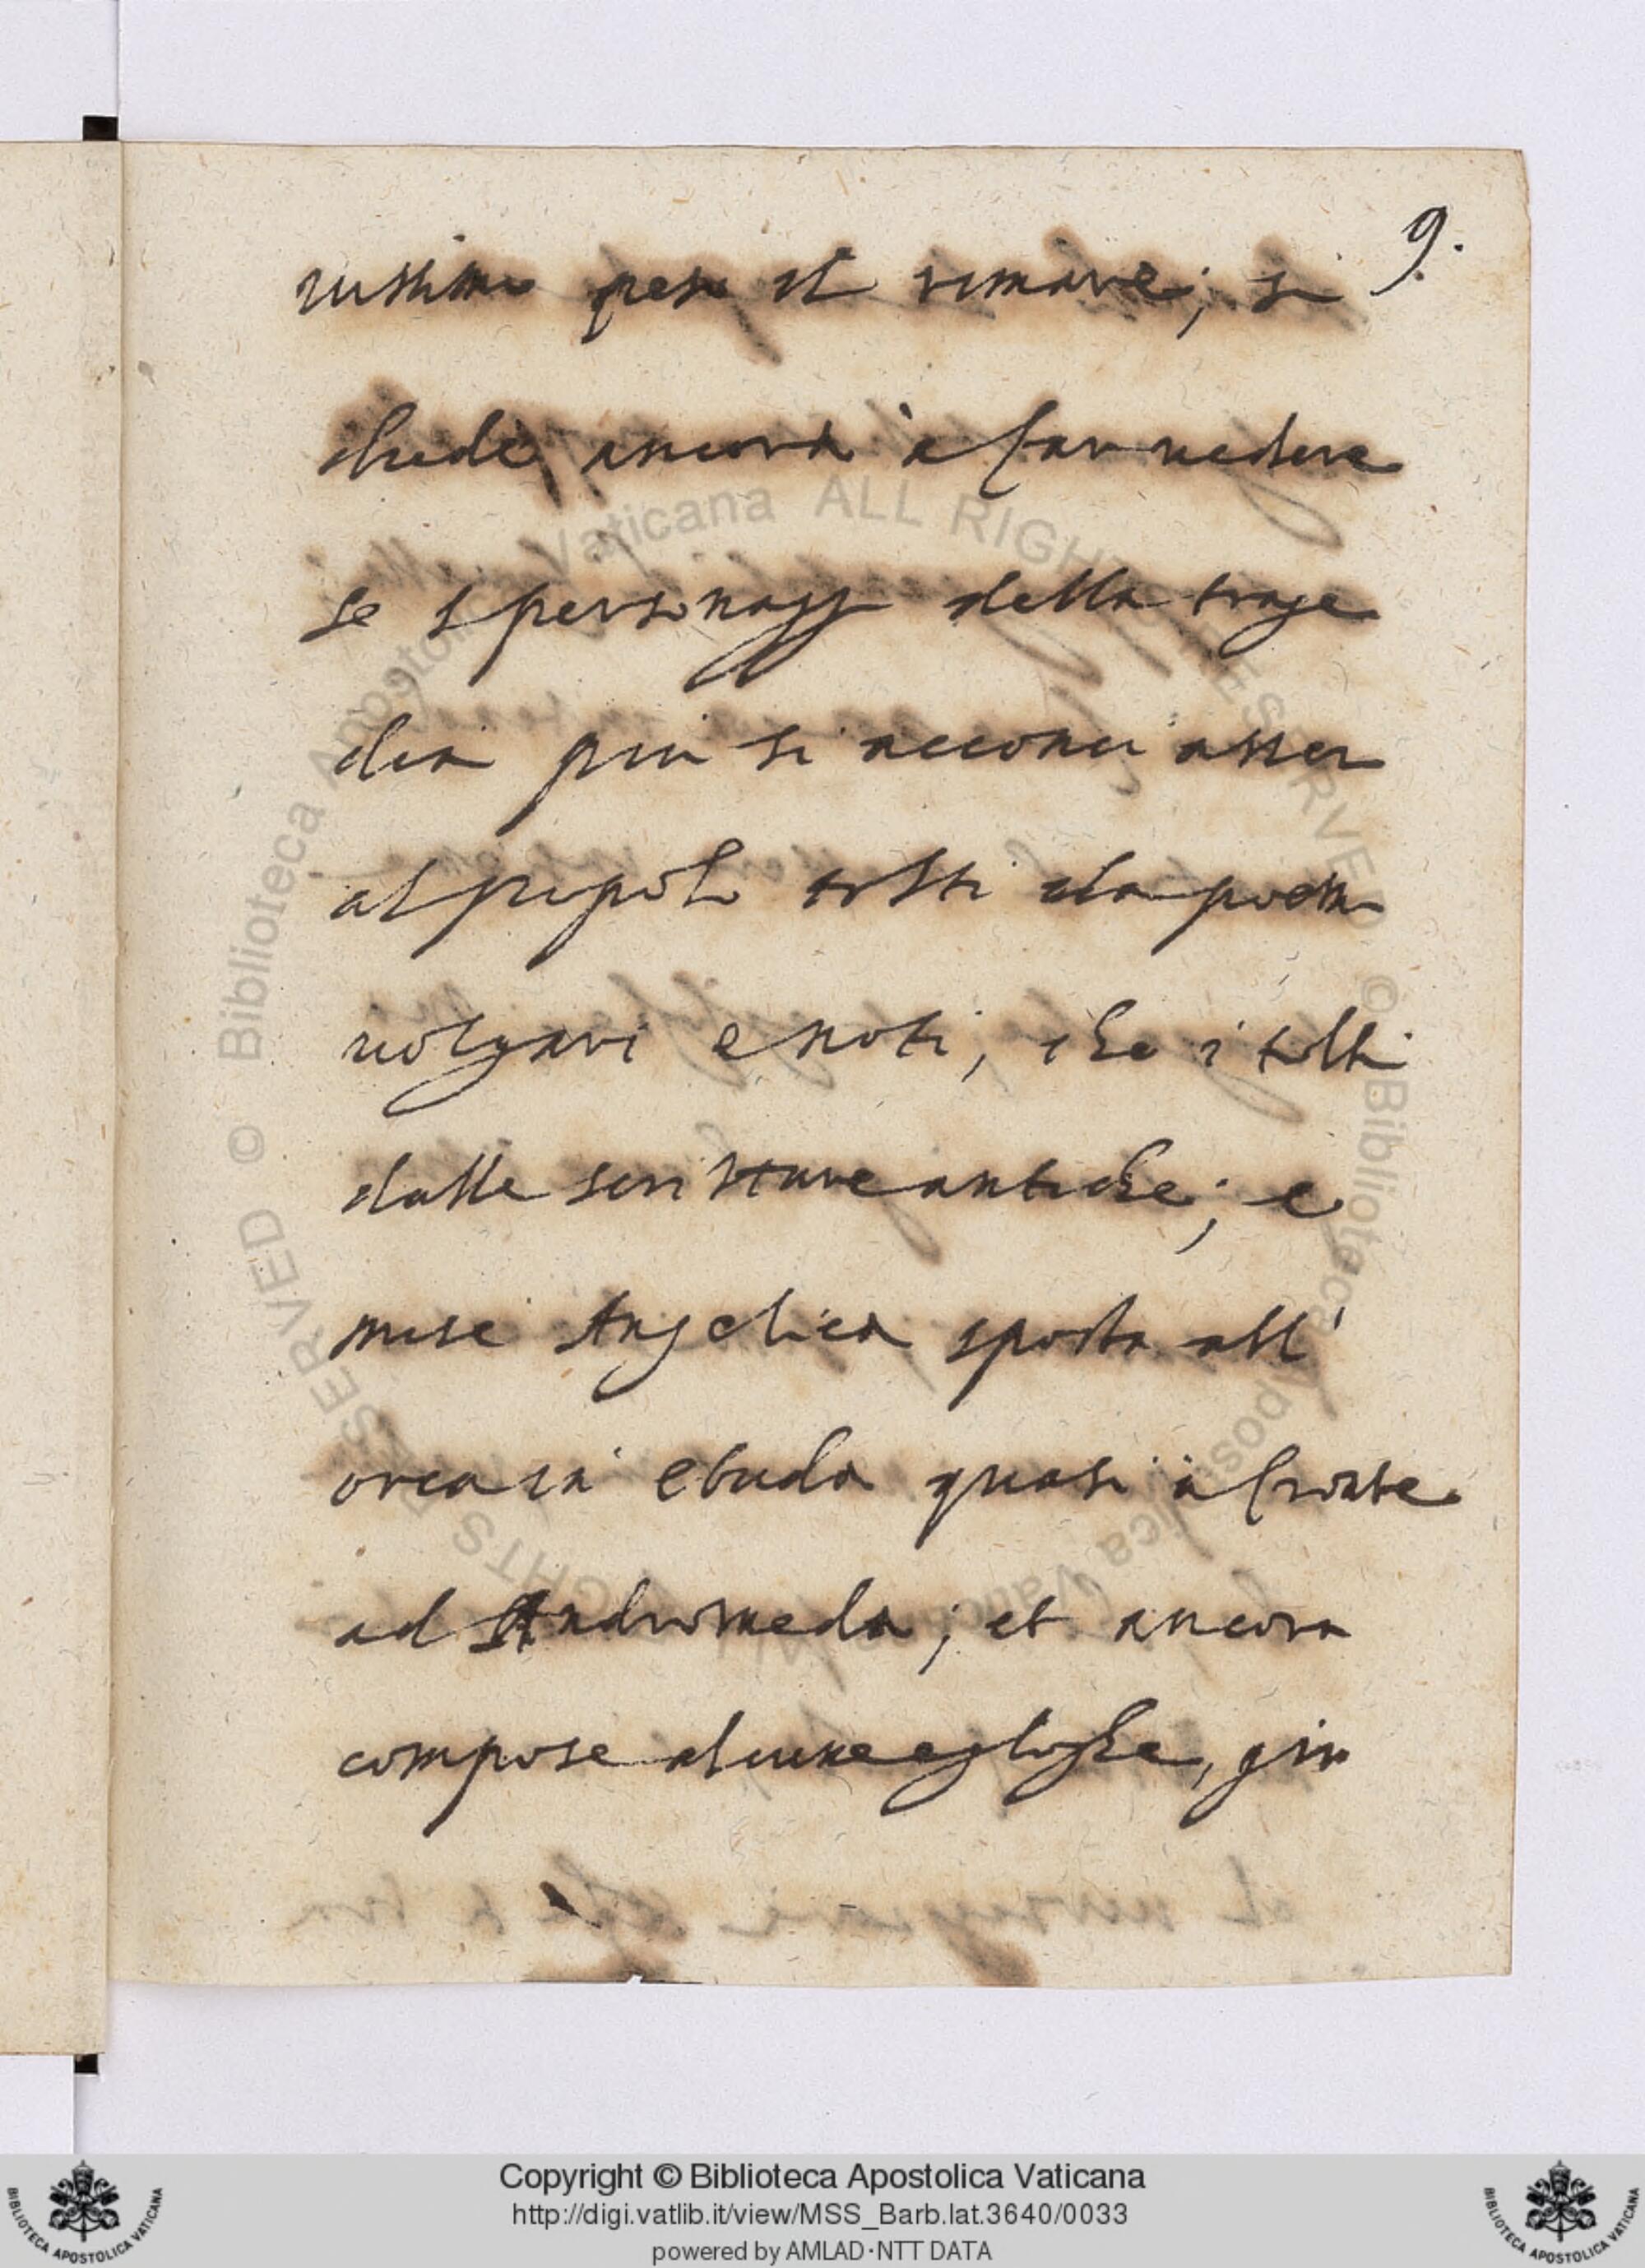 9.
uissimo peso il rimare; si
diede ancora à far uedere
se i personaggi della trage
dia piu si acconci asser
al popolo tolti da poemi
uolgari e noti, che i tolti
dalle scritture antiche; e
mise Angelica sposta all'
orca in ebuda quasi à fronte
ad Andromeda; et ancora
compose alcune egloghe, gia
Copyright © Biblioteca Apostolica Vaticana
http://digi.vatlib.it/view/MSS_Barb.lat.3640/0033
powered by AMLAD·NTT DATA
BIBLIOTECA APOSTOLICA VATICANA
BIBLIOTECA APOSTOLICA VATICANA
© Biblioteca Apostolica Vaticana ALL RIGHTS RESERVED
© Biblioteca Apostolica Vaticana ALL RIGHTS RESERVED